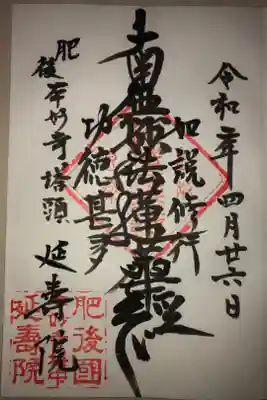 令和二年四月廿六日
如説修行
南無妙法蓮華経
功徳甚多
肥後本妙寺塔頭
延壽院
肥後國
延壽院